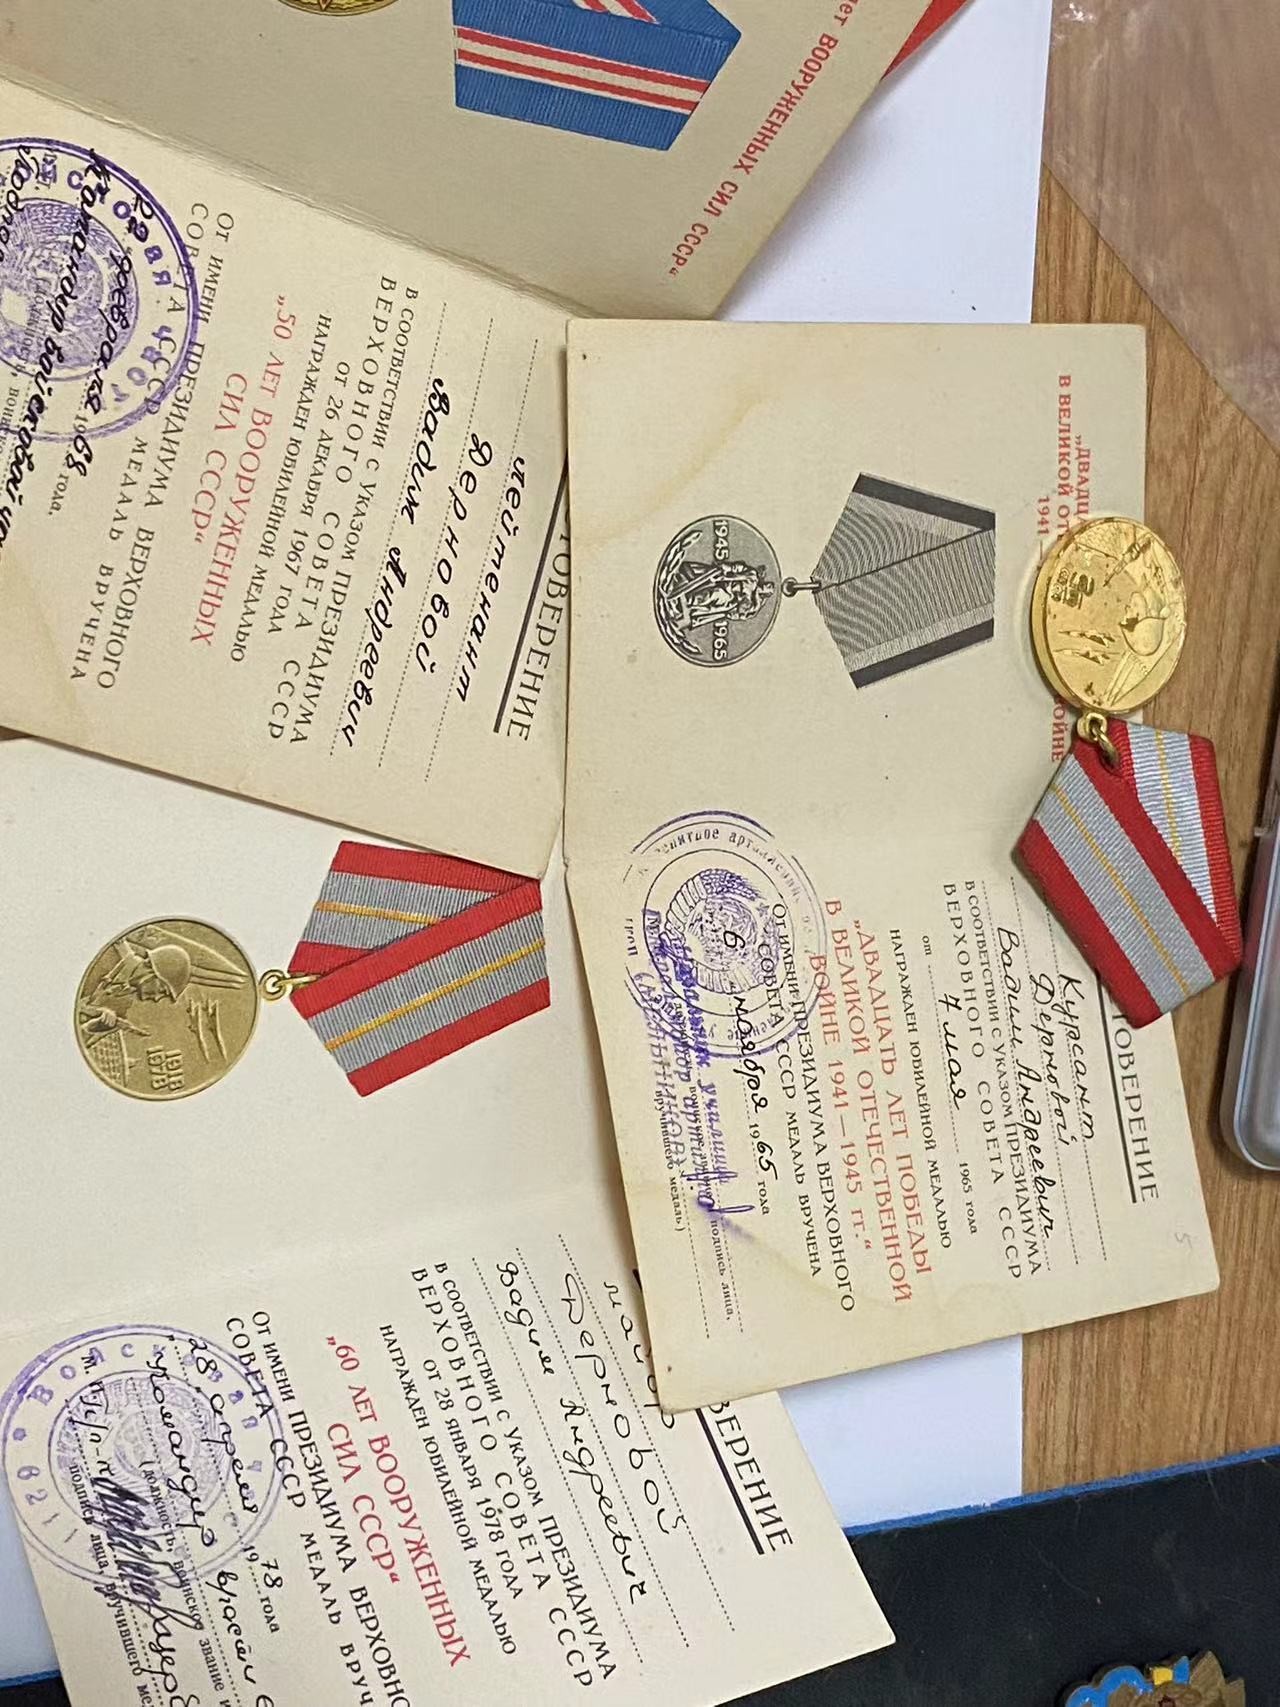 лет ВООРУЖЕННЫХ СИЛ СССР“
лейтенант
Дерновой
Вадим Андреевич
В СООТВЕТСТВИИ С УКАЗОМ ПРЕЗИДИУМА
ВЕРХОВНОГО СОВЕТА СССР
от 26 ДЕКАБРЯ 1967 ГОДА
НАГРАЖДЕН ЮБИЛЕЙНОЙ МЕДАЛЬЮ
„50 ЛЕТ ВООРУЖЕННЫХ
СИЛ СССР“
От ИМЕНИ ПРЕЗИДИУМА ВЕРХОВНОГО
СОВЕТА СССР МЕДАЛЬ ВРУЧЕНА
22 февраля 1968 года.
„ДВАДЦ
В ВЕЛИКОЙ ОТ ВОЙНЕ
1941—
1945 1965
ТОВЕРЕНИЕ
Курсант
Дерновой
Вадим Андреевич
В СООТВЕТСТВИИ С УКАЗОМ ПРЕЗИДИУМА
ВЕРХОВНОГО СОВЕТА СССР
от 7 мая 1965 года
НАГРАЖДЕН ЮБИЛЕЙНОЙ МЕДАЛЬЮ
„ДВАДЦАТЬ ЛЕТ ПОБЕДЫ
В ВЕЛИКОЙ ОТЕЧЕСТВЕННОЙ
ВОЙНЕ 1941—1945 гг.“
От ИМЕНИ ПРЕЗИДИУМА ВЕРХОВНОГО
СОВЕТА СССР МЕДАЛЬ ВРУЧЕНА
6 ноября 1965 года
подпись лица,
вручившего медаль)
5
1918
1978
ВЕРЕНИЕ
майор
Дерновой
Вадим Андреевич
В СООТВЕТСТВИИ С УКАЗОМ ПРЕЗИДИУМА
ВЕРХОВНОГО СОВЕТА СССР
от 28 ЯНВАРЯ 1978 ГОДА
НАГРАЖДЕН ЮБИЛЕЙНОЙ МЕДАЛЬЮ
„60 ЛЕТ ВООРУЖЕННЫХ
СИЛ СССР“
От ИМЕНИ ПРЕЗИДИУМА ВЕРХОВНО
СОВЕТА СССР МЕДАЛЬ ВРУЧ
28 апреля 1978 года
М. П.
(должность, воинское звание и
подпись лица, вручившего ме